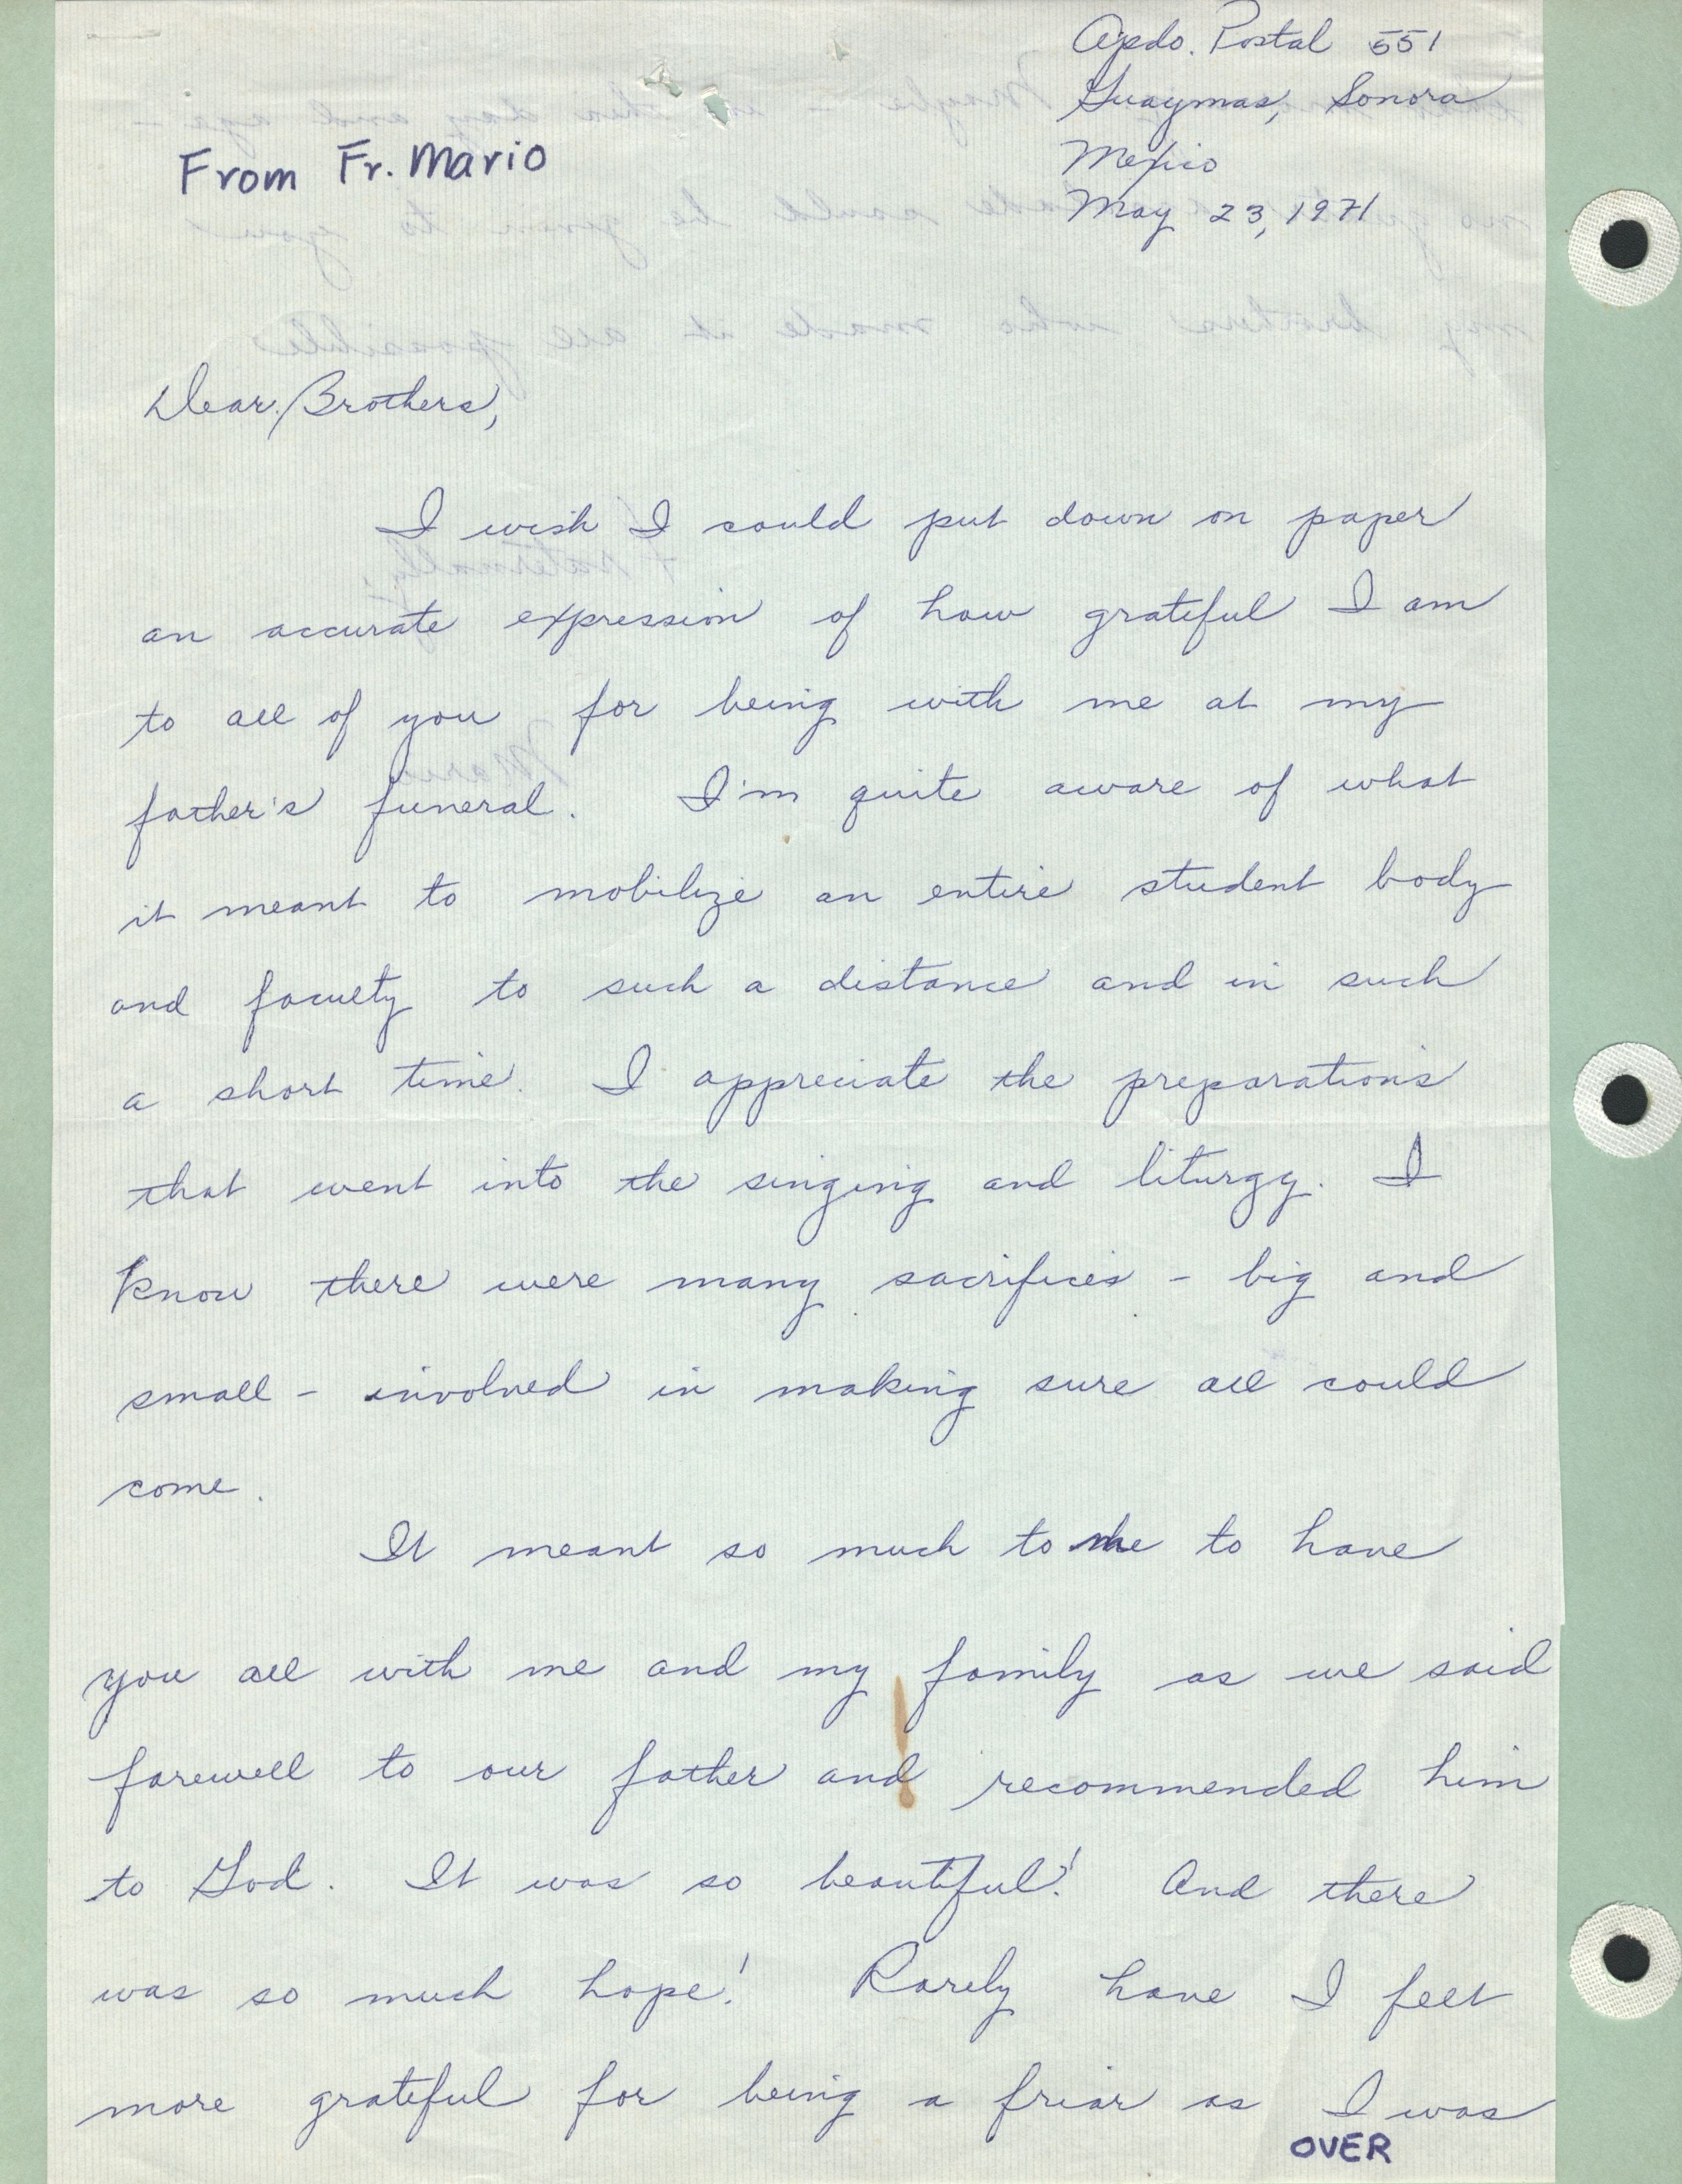 Apdo. Postal 551
Guaymas, Sonora
Mexico
May 23, 1971
From Fr. Mario
Dear Brothers,
I wish I could put down on paper
an accurate expression of how grateful I am
to all of you for being with me at my
father's funeral. I'm quite aware of what
it meant to mobilize an entire student body
and faculty to such a distance and in such
a short time. I appreciate the preparations
that went into the singing and liturgy. I
know there were many sacrifices - big and
small - involved in making sure all could
come.
It meant so much to me to have
you all with me and my family as we said
farewell to our father and recommended him
to God. It was so beautiful! And there
was so much hope! Rarely have I felt
more grateful for being a friar as I was
OVER